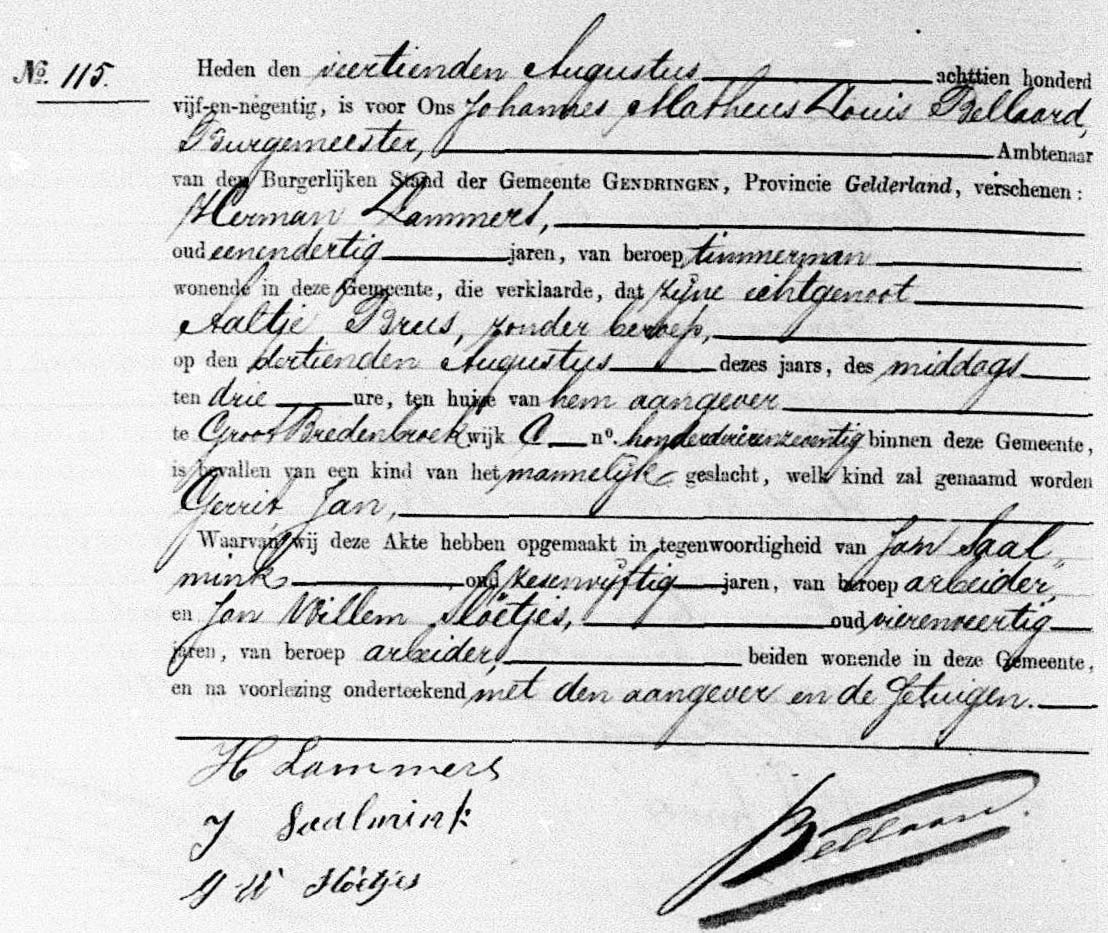 No. 115.
Heden den viertienden Augustus achttien honderd
vijf-en-negentig, is voor Ons Johannes Matheus Louis Bellaard,
Burgemeester, Ambtenaar
van den Burgerlijken Stand der Gemeente GENDRINGEN, Provincie Gelderland, verschenen:
Herman Lammers,
oud eenendertig jaren, van beroep timmerman
wonende in deze Gemeente, die verklaarde, dat zijne echtgenoot
Aaltje Brus, zonder beroep,
op den dertienden Augustus dezes jaars, des middags
ten drie ure, ten huize van hem aangever
te Groot Bredenbroek wijk C no. honderdvierenzeventig binnen deze Gemeente,
is bevallen van een kind van het mannelijk geslacht, welk kind zal genaamd worden
Gerrit Jan,
Waarvan wij deze Akte hebben opgemaakt in tegenwoordigheid van Jan Saal
mink, oud zesenvijftig jaren, van beroep arbeider,
en Jan Willem Slöetjes, oud vierenveertig
jaren, van beroep arbeider, beiden wonende in deze Gemeente,
en na voorlezing onderteekend met den aangever en de getuigen.
H Lammers
J Saalmink
J W Slöetjes
Bellaard.